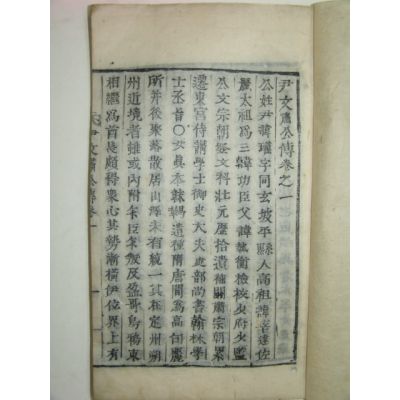 尹文肅公傳卷之一
公姓尹諱瓘字同玄坡平縣人高祖諱莘達佐
麗太祖爲三韓功臣父諱執衡檢校少府少監
公文宗朝登文科壯元歷拾遺補闕肅宗朝累
遷東宮侍講學士御史大夫吏部尙書翰林學
士丞旨○女眞本靺鞨遺種隋唐間爲高句麗
所幷後聚落散居山澤未有統一其在定州朔
州近境者雖或內附乍臣乍叛及盈哥烏鴉束
相繼爲酋長頗得衆心其勢漸橫伊位界上有
尹文肅公傳卷一